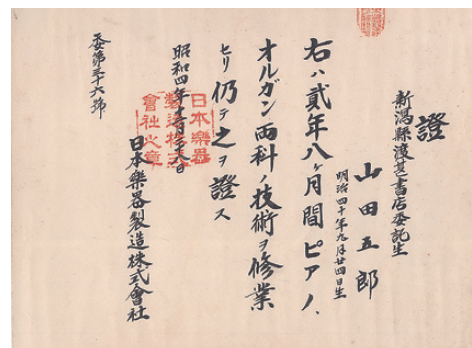 證
新潟縣渡甚書店委託生
山田五郎
明治四十年九月廿四日生
右ハ貳年八ヶ月間ピアノ、
オルガン両科ノ技術ヲ修業
セリ仍テ之ヲ證ス
昭和四年 月 日
日本樂器製造株式會社
委第三十六號
日本樂器
製造株式
會社之章